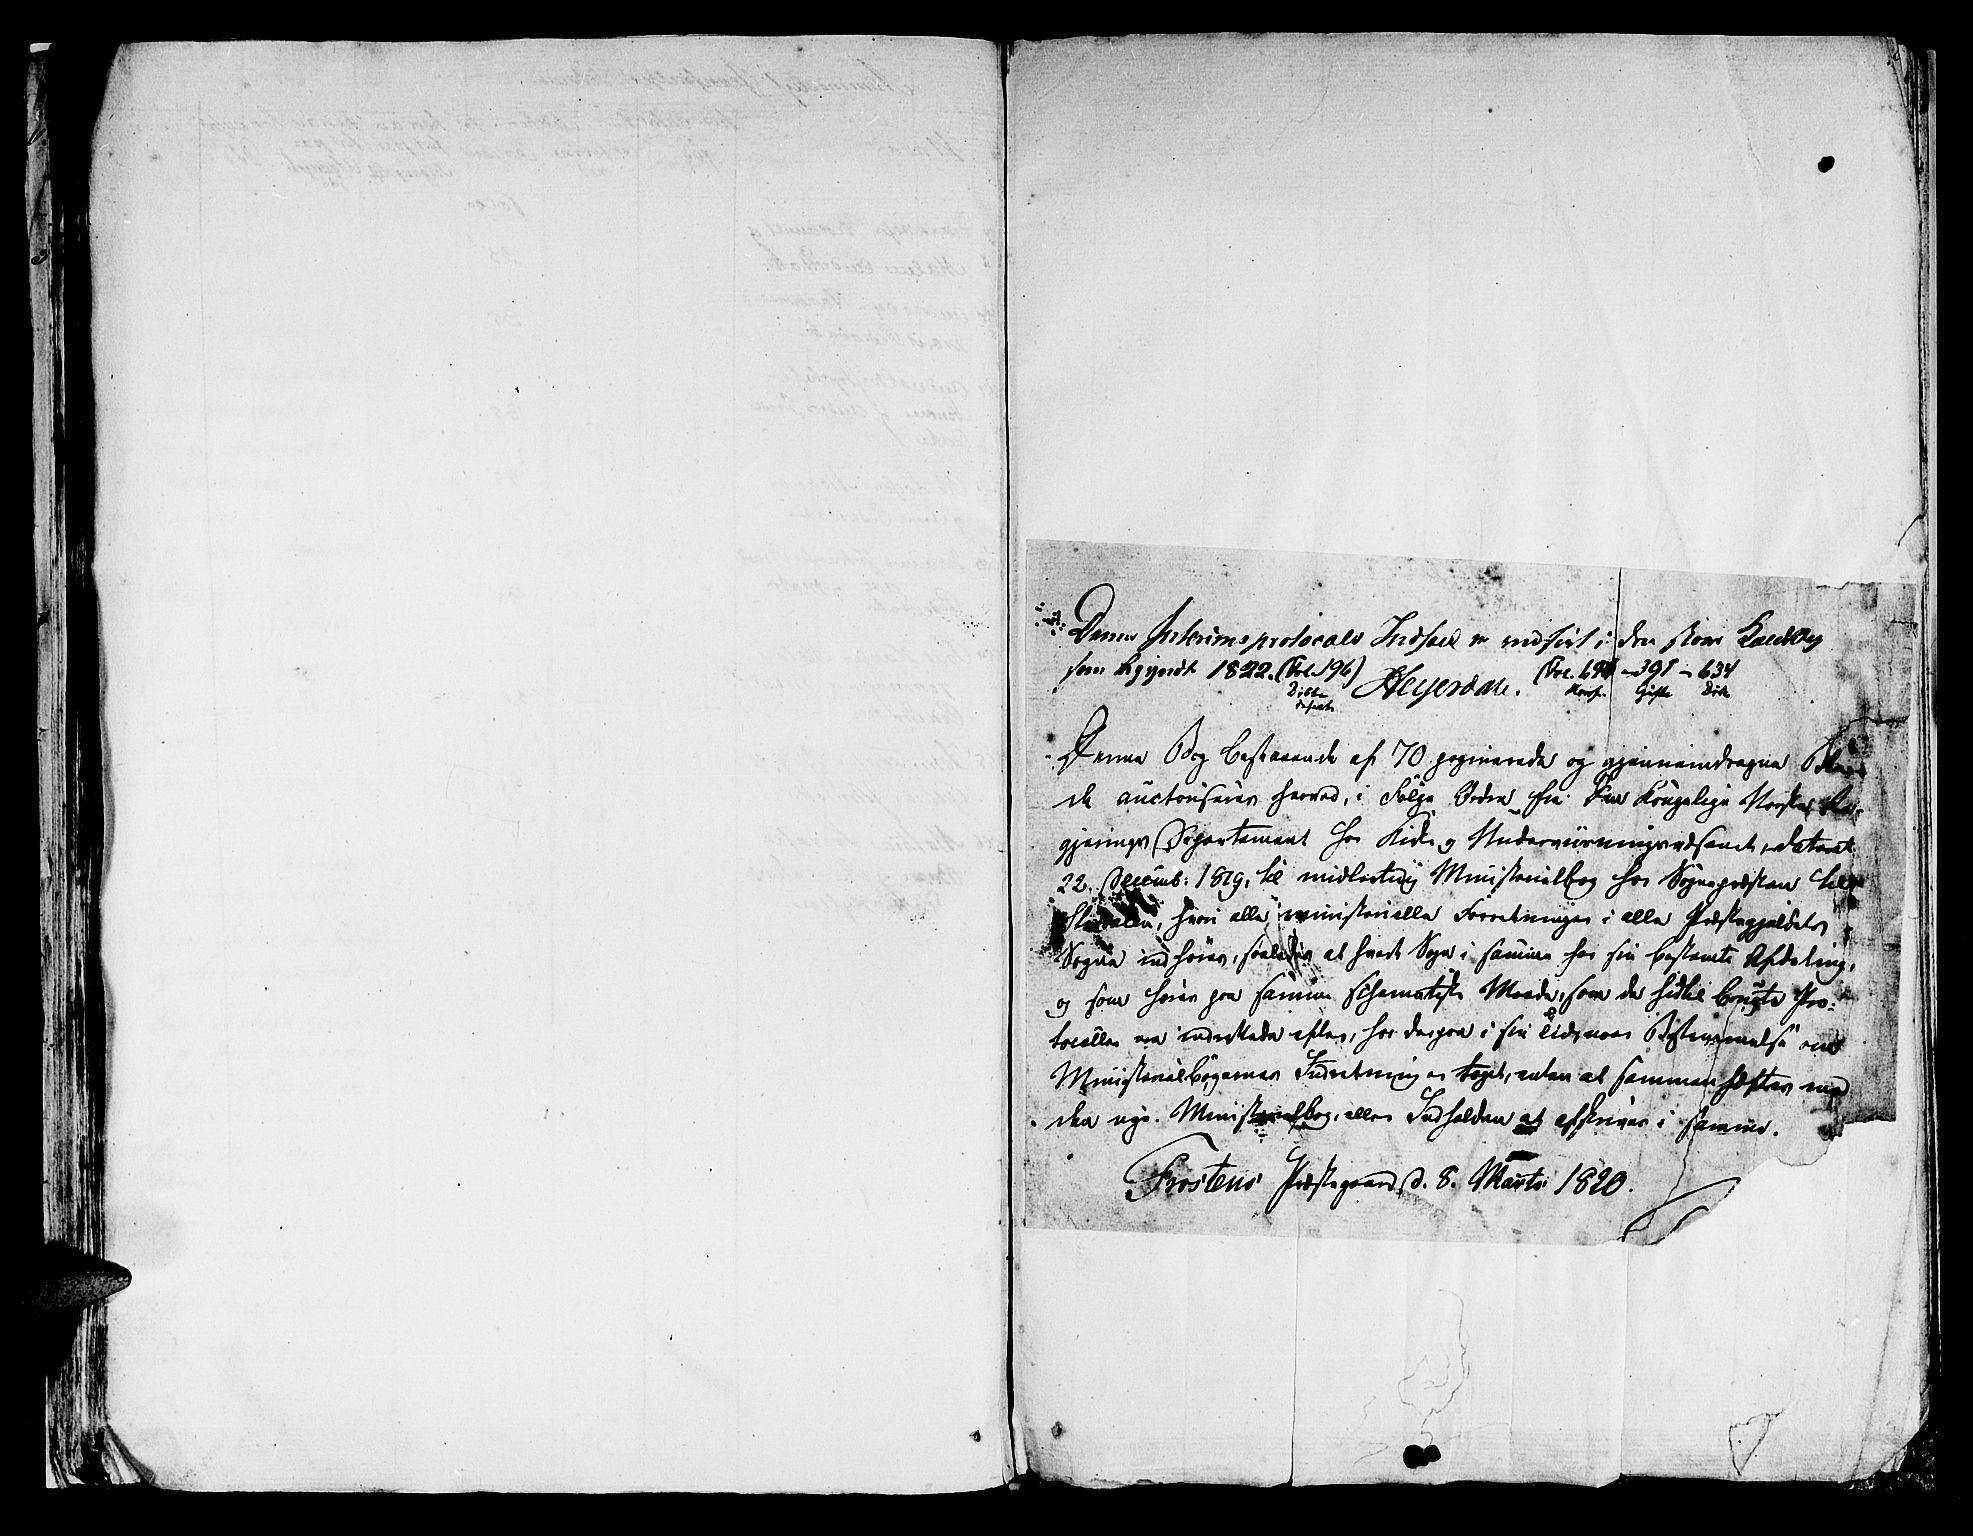 Denne Interimsprotocols Indhold er indført i den store Kaldbog
som begyndt 1822. (Fol. 196) Heyerdahl. (Fol. 391 – 634
Døbte Konf. Gifte Døde
Denne Bog bestaaende af 70 paginerede og gjennemdragne Blade
de auctoriseres herved, i Følge Ordre fra Det Kongelige Norske Re-
gjerings Departement for Kirke og Underviisningsvæsenet, dateret
22. Decemb: 1819, til midlertidig Ministerialbog for Sognepræsten til
hvori alle ministerielle Forretninger i alle Præstegjeldets
Sogne indføres, saaledes at hvert Sogn i samme har sin bestemte Afdeling,
og som føres paa samme schematiske Maade, som de hidtil brugte Pro-
tocoller ere indrettede efter, for derpaa i sin Tid, naar Bestemmelse om
Ministerialbøgernes Indretning er taget, enten at sammenhæftes med
den nye Ministerialbog, eller Indholden at afskrives i samme.
Frostens Præstegaard d. 8. Marts 1820.